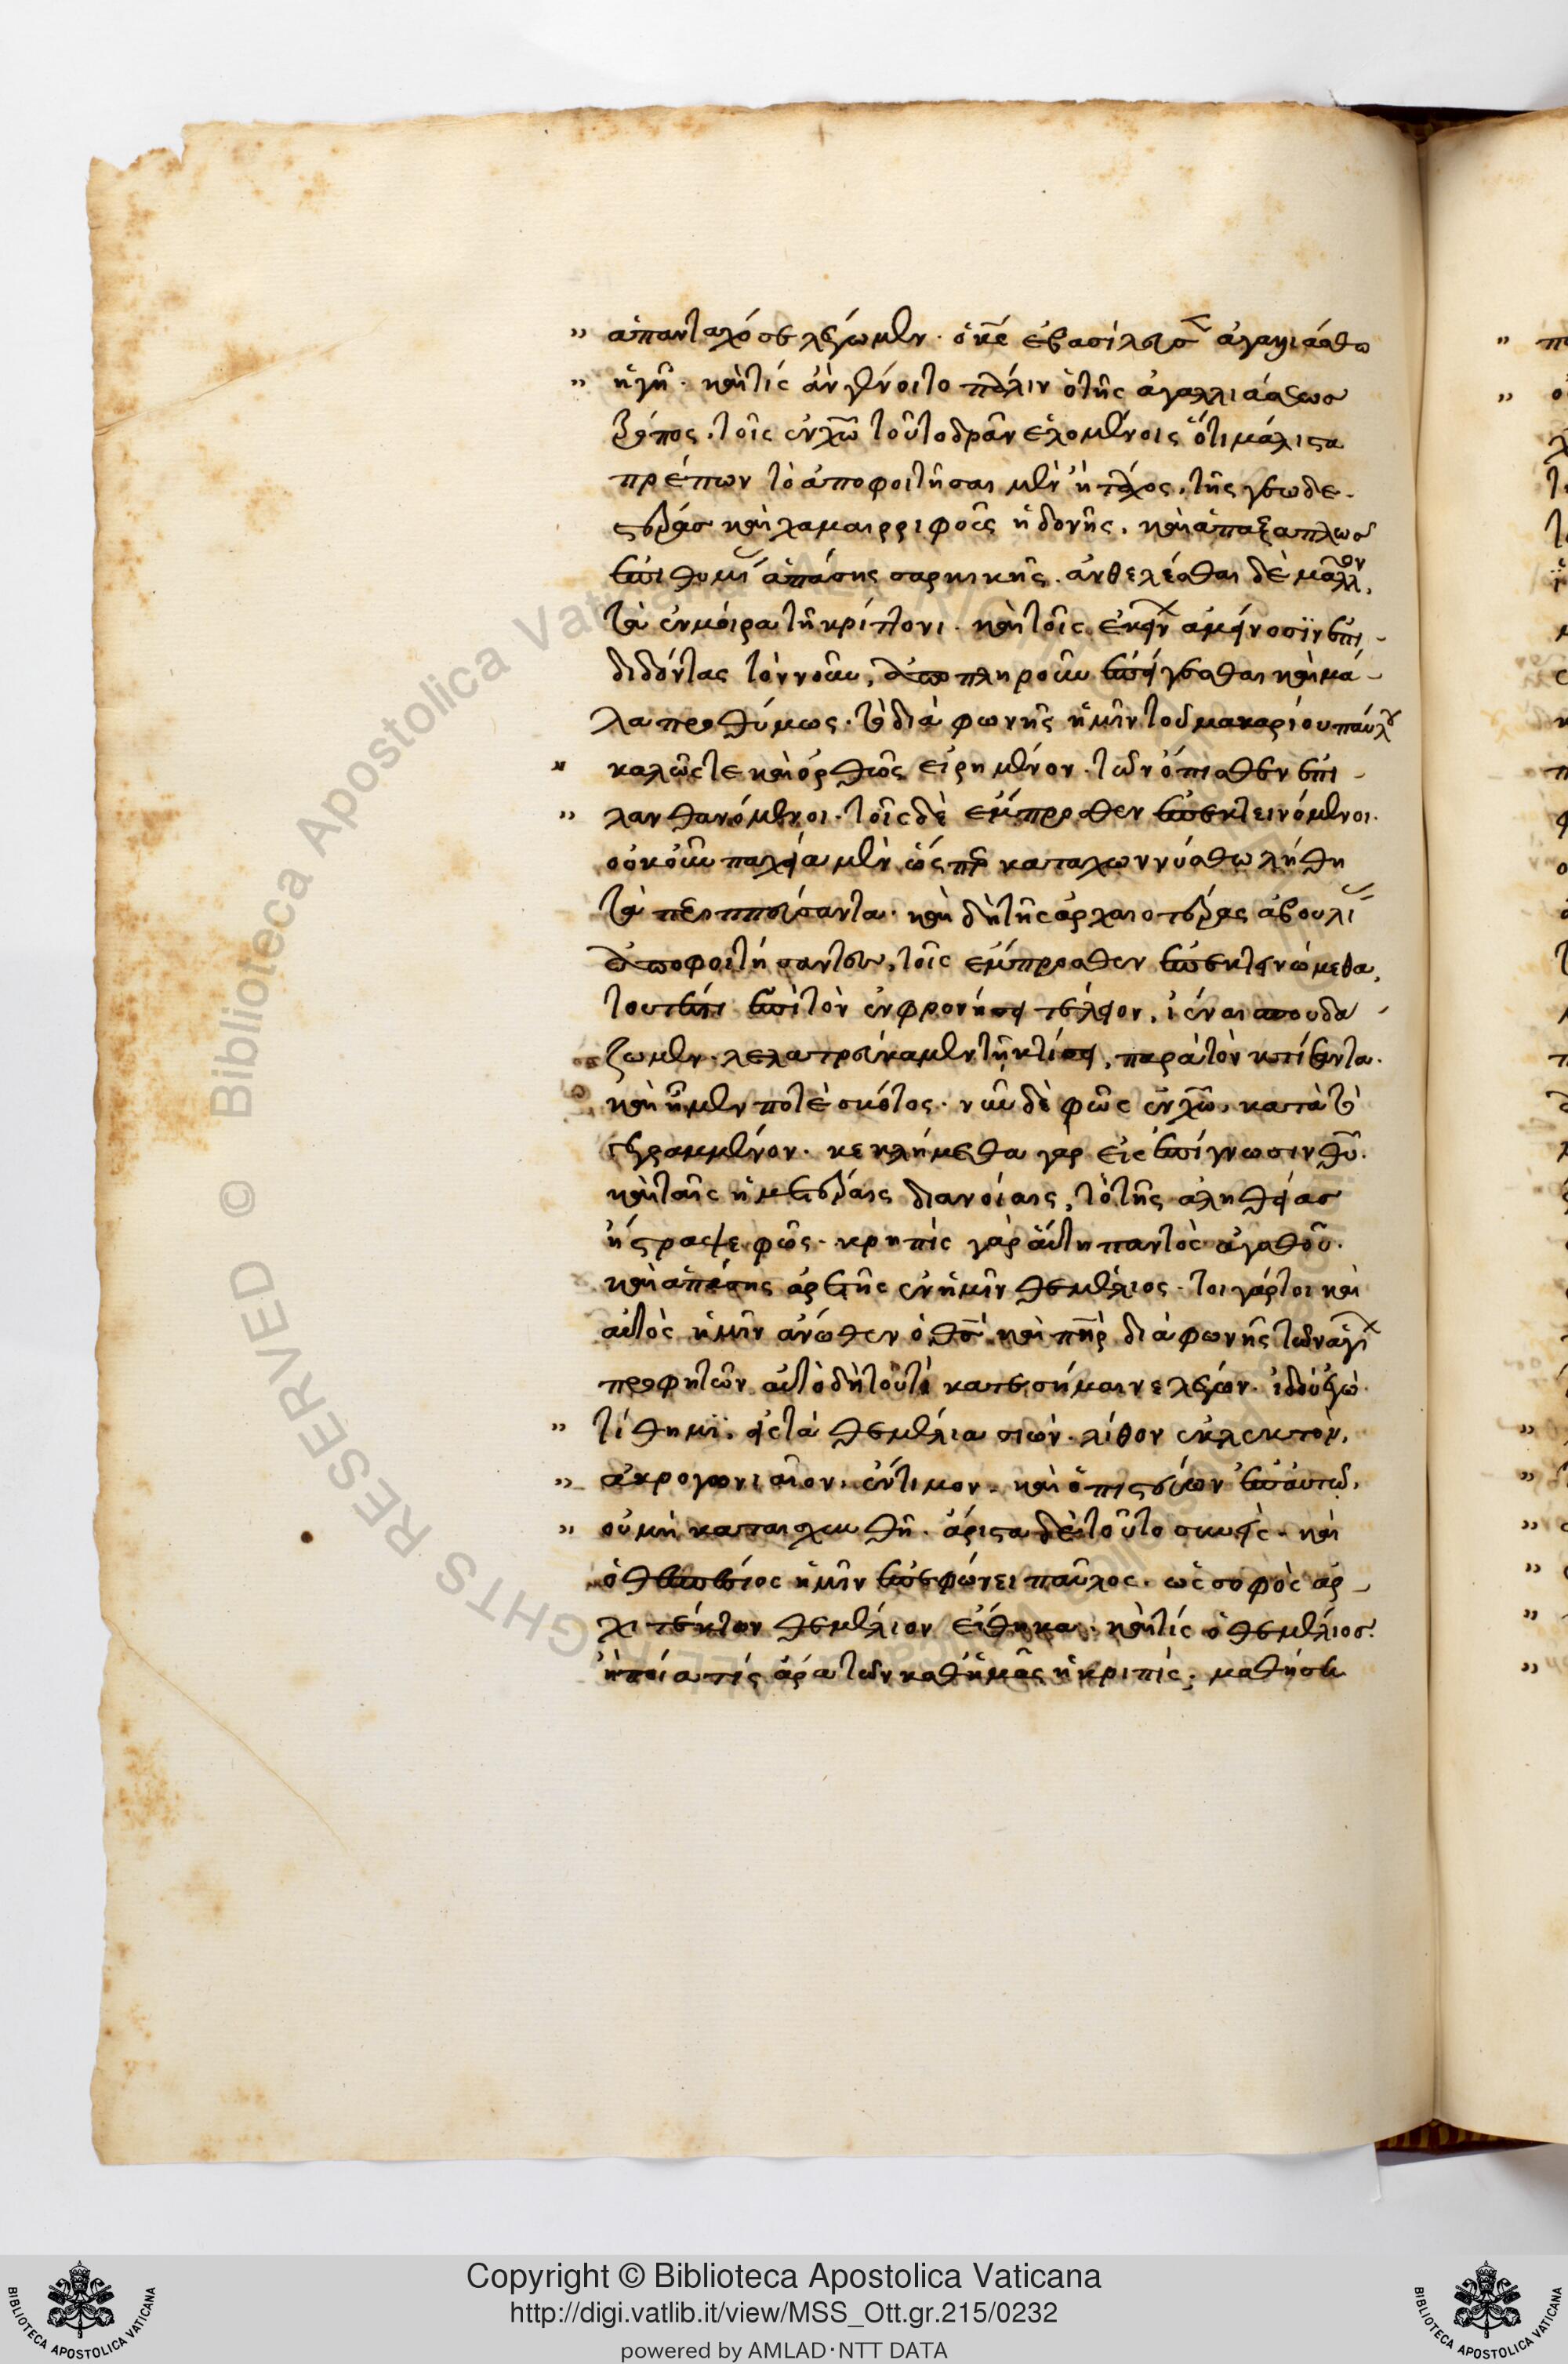 ἁπανταχόσε λέγωμεν· ὁ κς ἐβασίλευσεν ἀγαλλιάσθω
ἡ γῆ· καὶ τίς ἂν γένοιτο πάλιν ὁ τῆς ἀγαλλιάσεως
τρόπος, τοῖς ἐν χῶ τοῦτο δρᾶν ἑλομένοις ὅτι μάλιστα
πρέπων τὸ ἀποφοιτῆσαι μὲν ᾗ τάχος, τῆς γεωδε-
στέρας καὶ χαμαιρριφοῦς ἡδονῆς, καὶ ἁπαξαπλῶς
ἐπιθυμίας ἁπάσης σαρκικῆς· ἀνθελέσθαι δὲ μᾶλλον,
τὰ ἐν μοίρα τῆ κρίττονι· καὶ τοῖς ἐκείνων ἀμείνοσϊν ἐπι-
διδόντας τὸν νοῦν, ἀποπληροῦν ἐπείγεσθαι καὶ μά-
λα προθύμως· τὸ διὰ φωνῆς ἡμῖν τοῦ μακαρίου παύλου
καλῶς τε καὶ ὀρθῶς εἰρημένον· τῶν ὄπισθεν ἐπι-
λανθανόμενοι· τοῖς δὲ ἔμπροσθεν ἐπεκτεινόμενοι·
οὐκοῦν παχεία μὲν ὥσπερ καταχωννύσθω λήθη
τὰ παριππεύσαντα· καὶ δὴ τῆς ἀρχαιοτέρας ἀβουλίας
ἀποφοιτήσαντες, τοῖς ἔμπροσθεν ἐπεκτεινώμεθα,
τουτέστι ἐπὶ τὸν ἐν φρονήσει τέλειον, ἰέναι σπουδά-
ζωμεν· λελατρεύκαμεν τῆ κτίσει, παρὰ τὸν κτίσαντα·
καὶ ἦμεν ποτὲ σκότος· νῦν δὲ φῶς ἐν χῶ, κατὰ τὸ
γεγραμμένον· κεκλήμεθα γὰρ εἰς ἐπίγνωσιν θυ·
καὶ ταῖς ἡμετέραις διανοίαις, τὸ τῆς ἀληθείας
ἤστραψε φῶς· κρηπὶς γὰρ αὕτη παντὸς ἀγαθοῦ·
καὶ ἁπάσης ἀρετῆς ἐν ἡμῖν θεμέλιος· τοιγάρτοι καὶ
αὐτὸς ἡμῖν ἄνωθεν ὁ θς καὶ πηρ διὰ φωνῆς τῶν ἁγίων
προφητῶν αὐτὸ δὴ τοῦτο κατεσήμαινε λέγων· ἰδοὺ ἐγὼ
τίθημϊ, εἰς τὰ θεμέλια σιὼν· λίθον ἐκλεκτὸν,
ἀκρογωνιαῖον, ἔντιμον· καὶ ὁ πιστεύων ἐπ αὐτῶ,
οὐ μὴ καταισχυνθῆ· ἄριστα δὲ τοῦτο συνεὶς· καὶ
ὁ θεσπέσιος ἡμῖν ἐπεφώνει παῦλος· ὡς σοφὸς ἀρ-
χιτέκτων θεμέλιον ἔθηκα· καὶ τίς ὁ θεμέλιος·
ἢ ποία τίς ἄρα τῶν καθ ἡμᾶς ἡ κριπὶς; μαθήσῃ
Copyright © Biblioteca Apostolica Vaticana
http://digi.vatlib.it/view/MSS_Ott.gr.215/0232
powered by AMLAD·NTT DATA